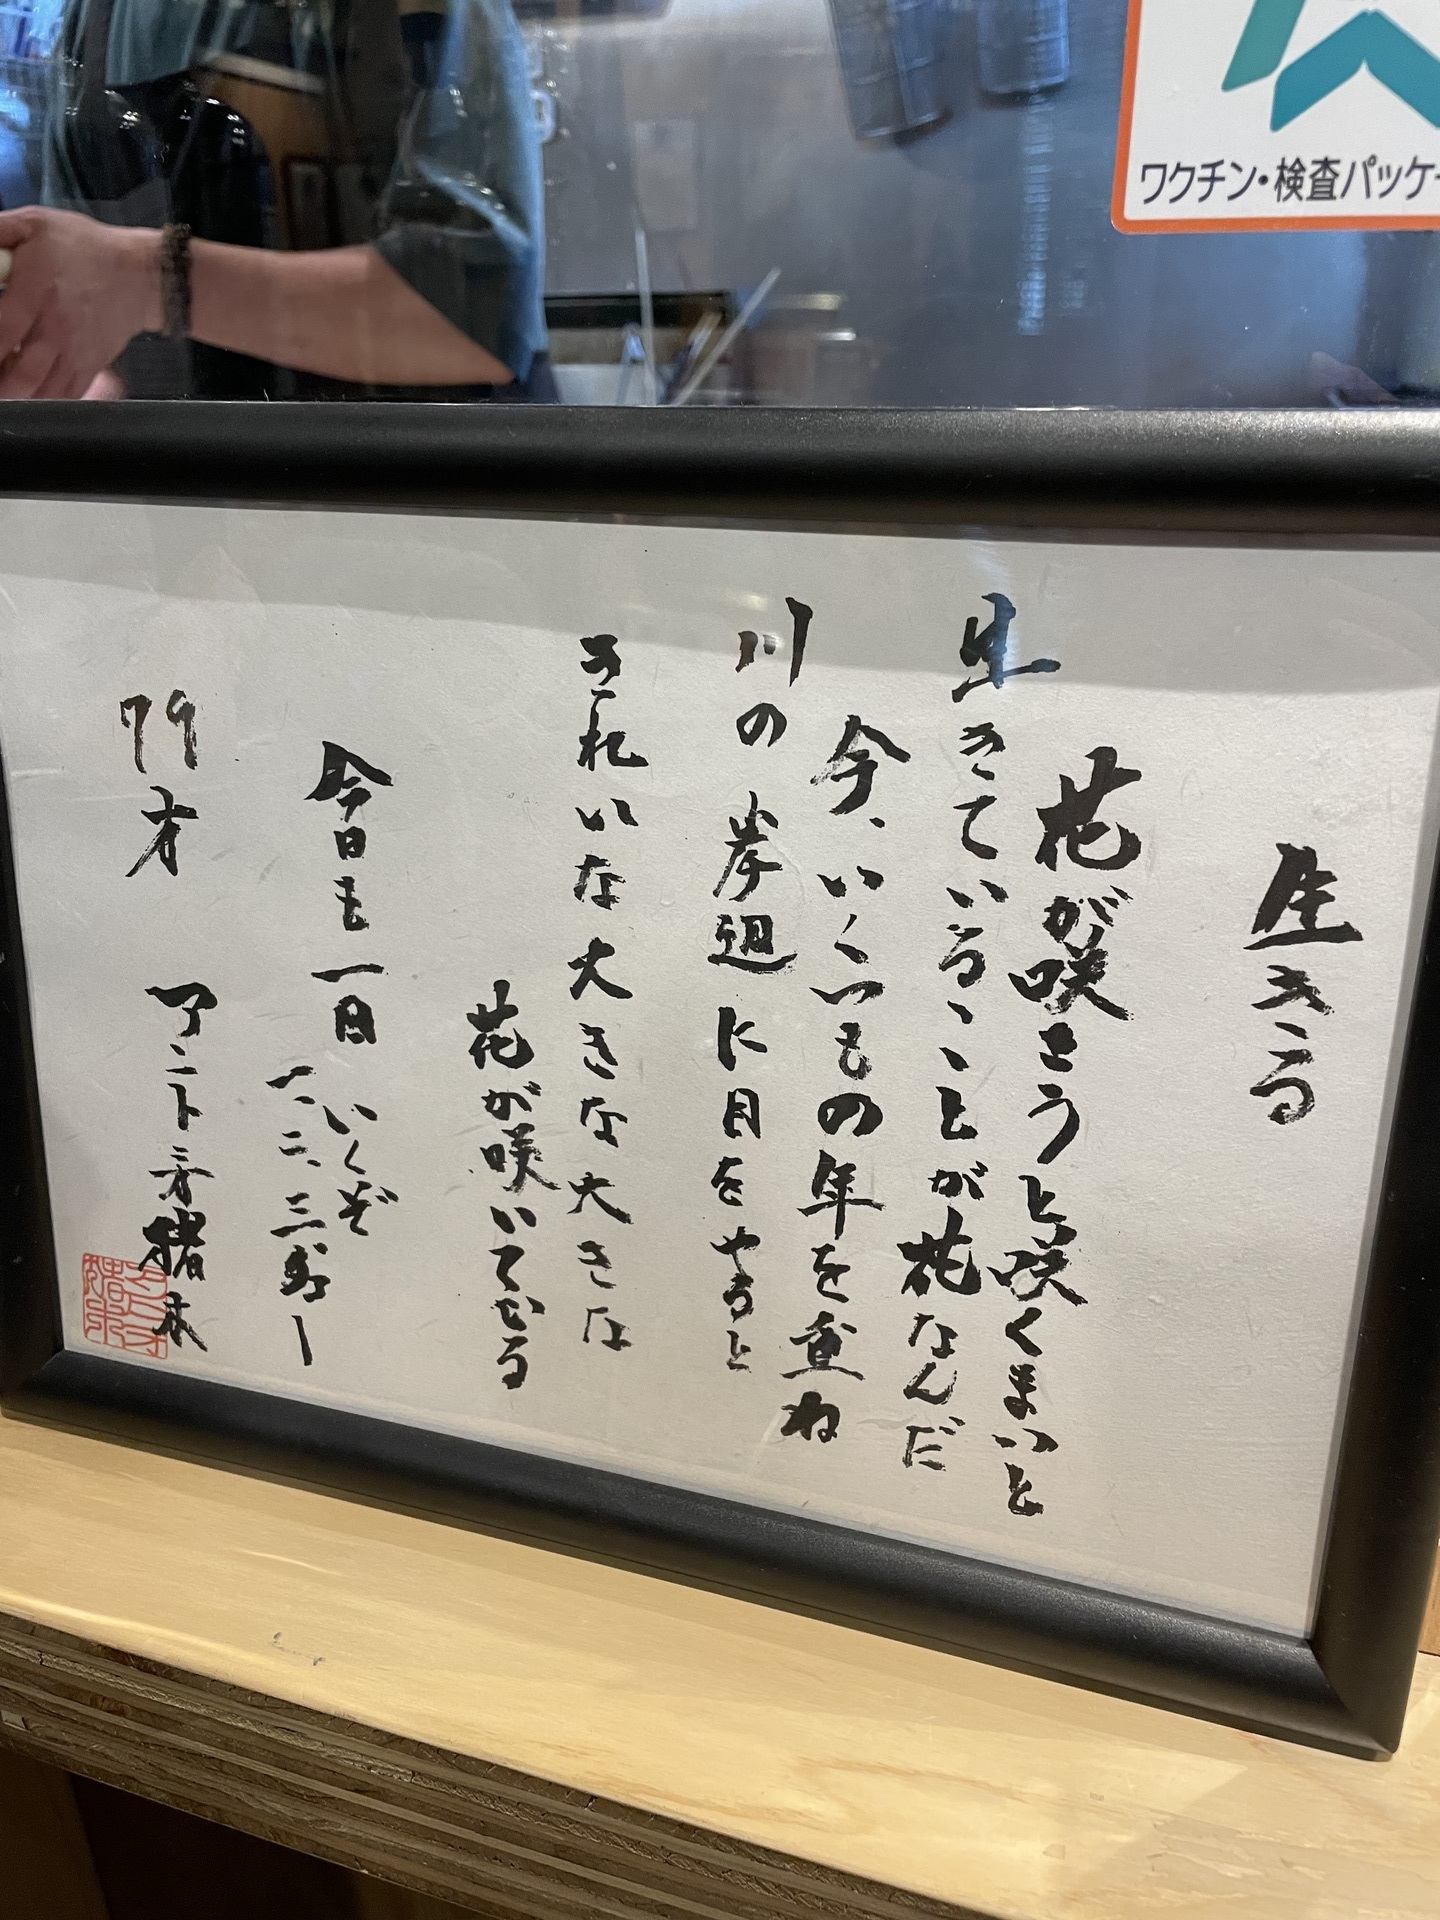 ワクチン・検査パッケー
生きる
花が咲こうと咲くまいと
生きていることが花なんだ
今、いくつもの年を重ね
川の岸辺に目をやると
きれいな大きな大きな
花が咲いてる
今日も一日いくぞ
一、二、三、ダー
79才 アントニオ猪木